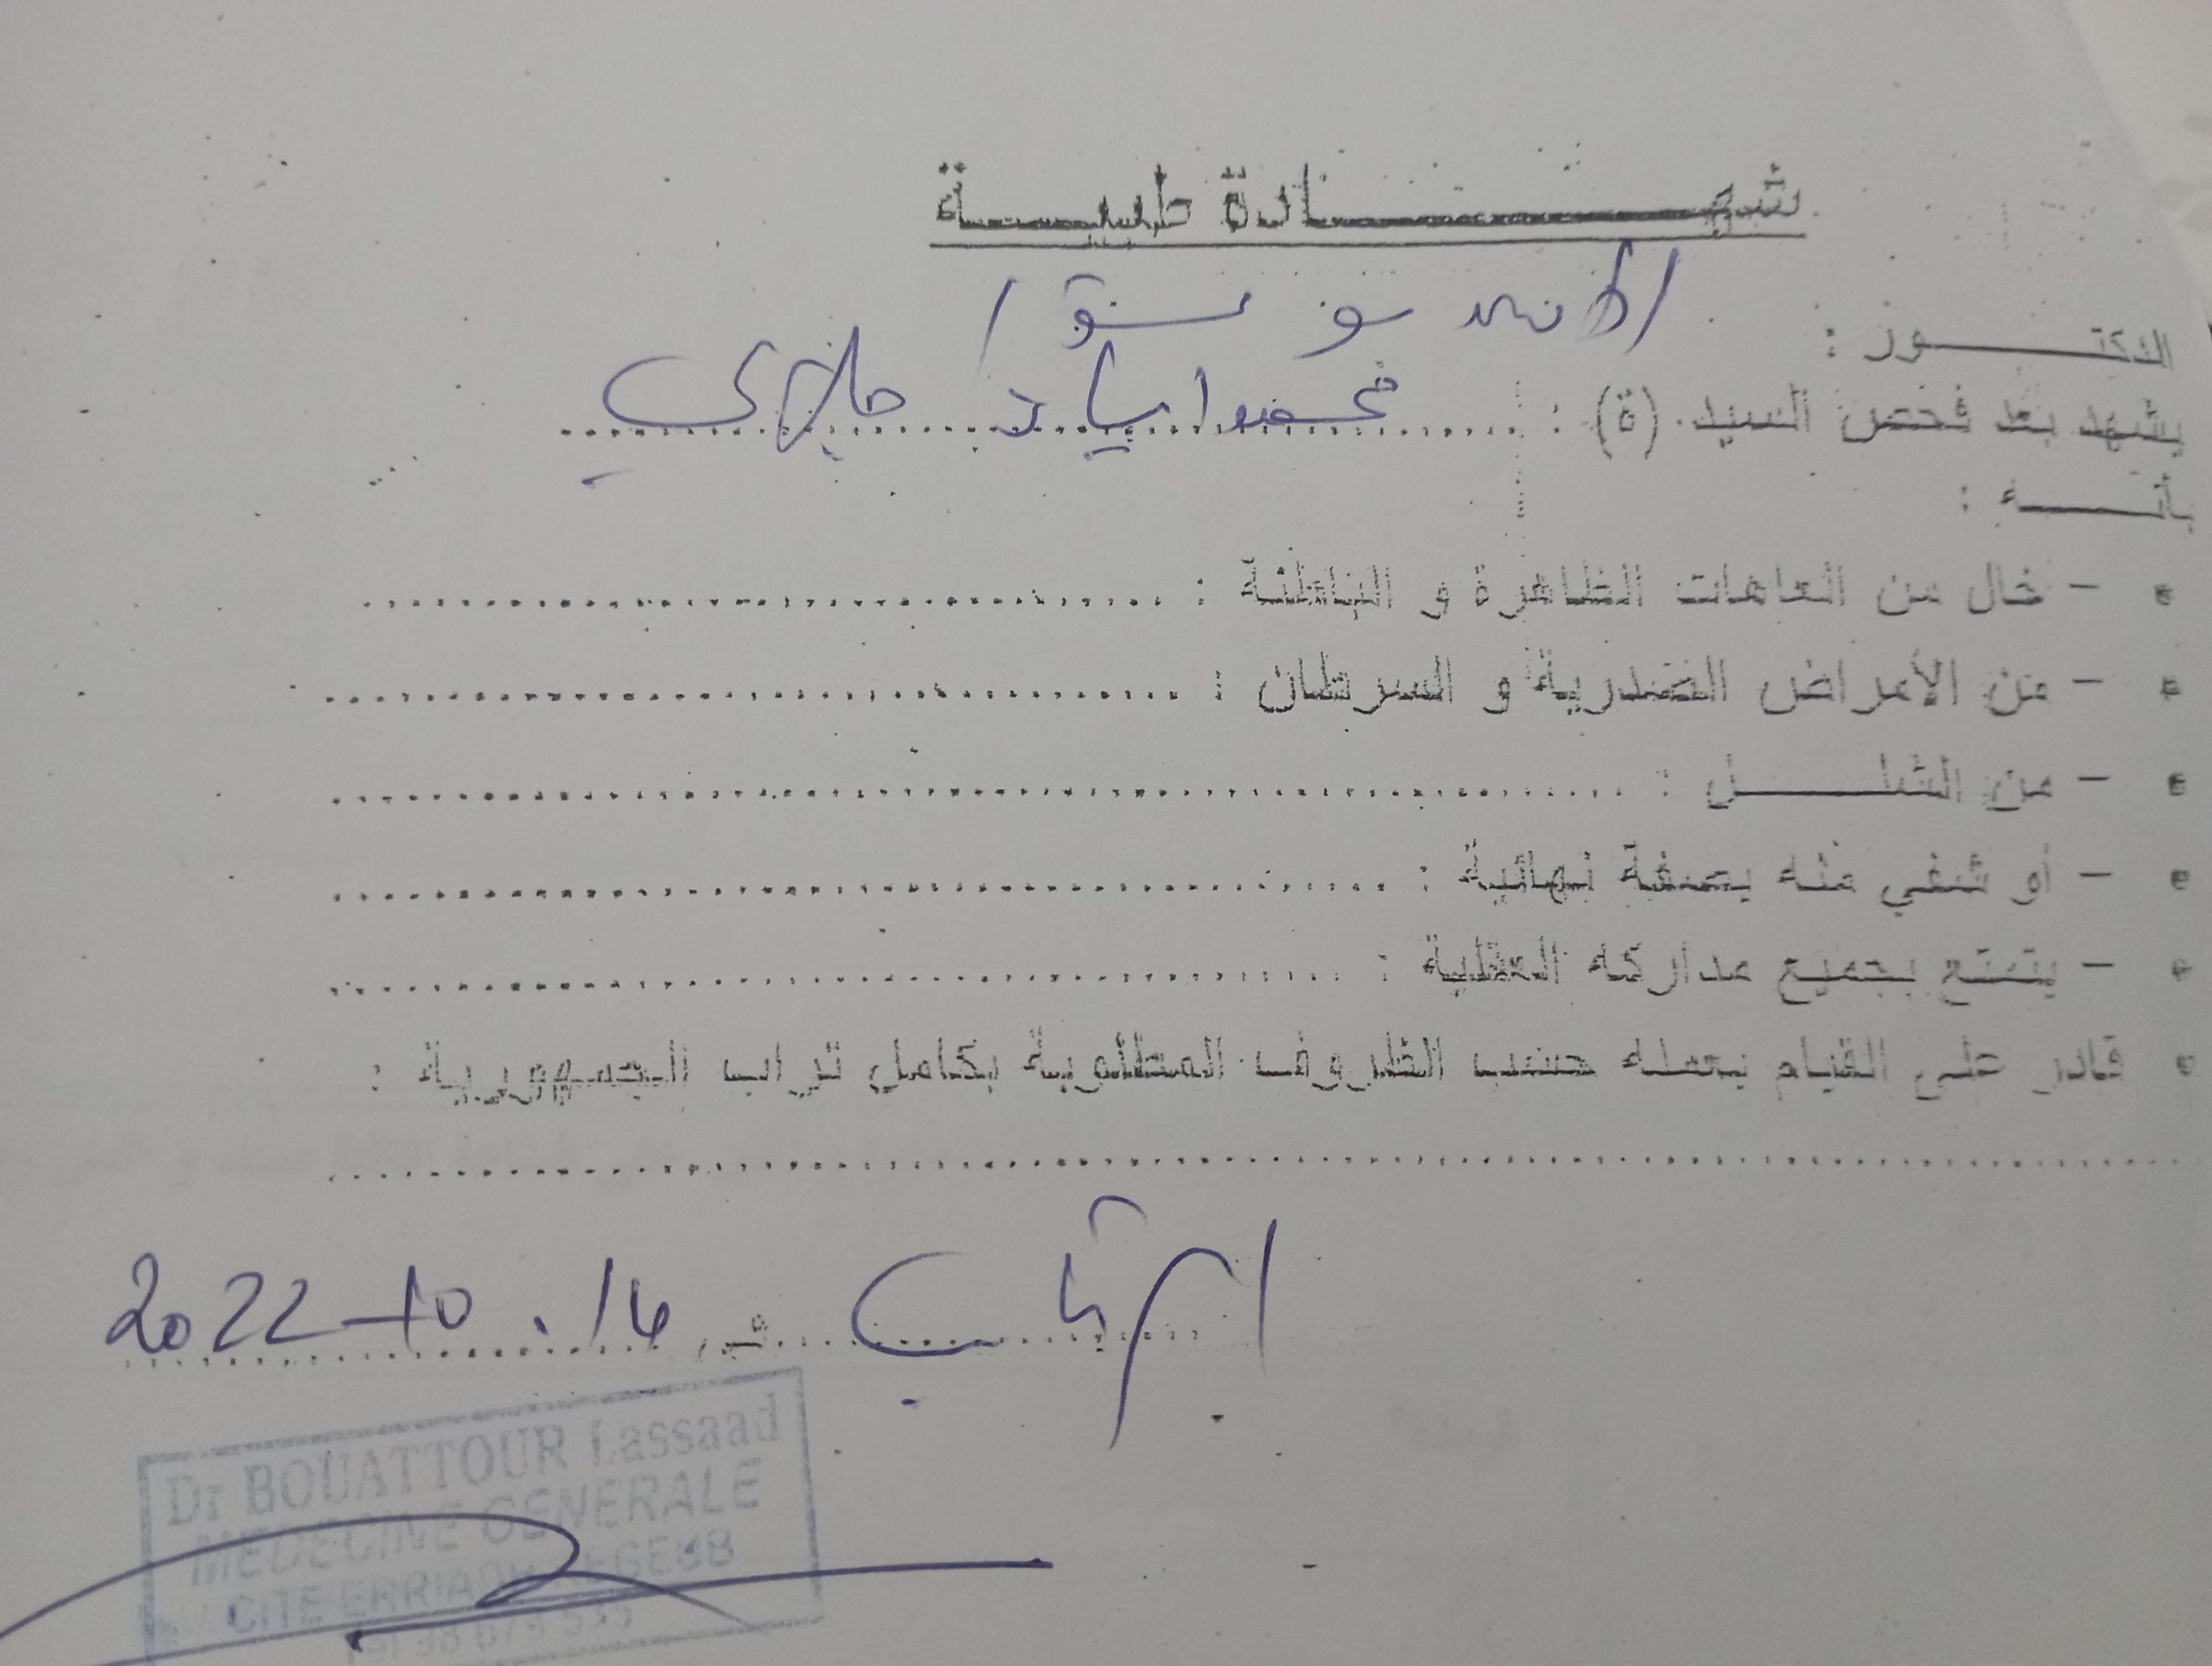 شهـــــــادة طبيـــة
الدكتـــــور :
يشهد بعد فحص السيد (ة) : ........................ 
بأنـــــه :
- خال من العاهات الظاهرة و الباطنة : ........................
- من الأمراض الصدرية و السرطان : ........................
- من الشلـــــــل : ........................
- أو شفي منه بصفة نهائية : ........................
- يتمتع بجميع مداركه العقلية : ........................
قادر على القيام بعمله حسب الظروف المطلوبة بكامل تراب الجمهورية :
........................
الرقاب في 16. 10-2022
Dr BOUATTOUR Lassaad
MEDECINE GENERALE
CITE ERRIADH REGEUB